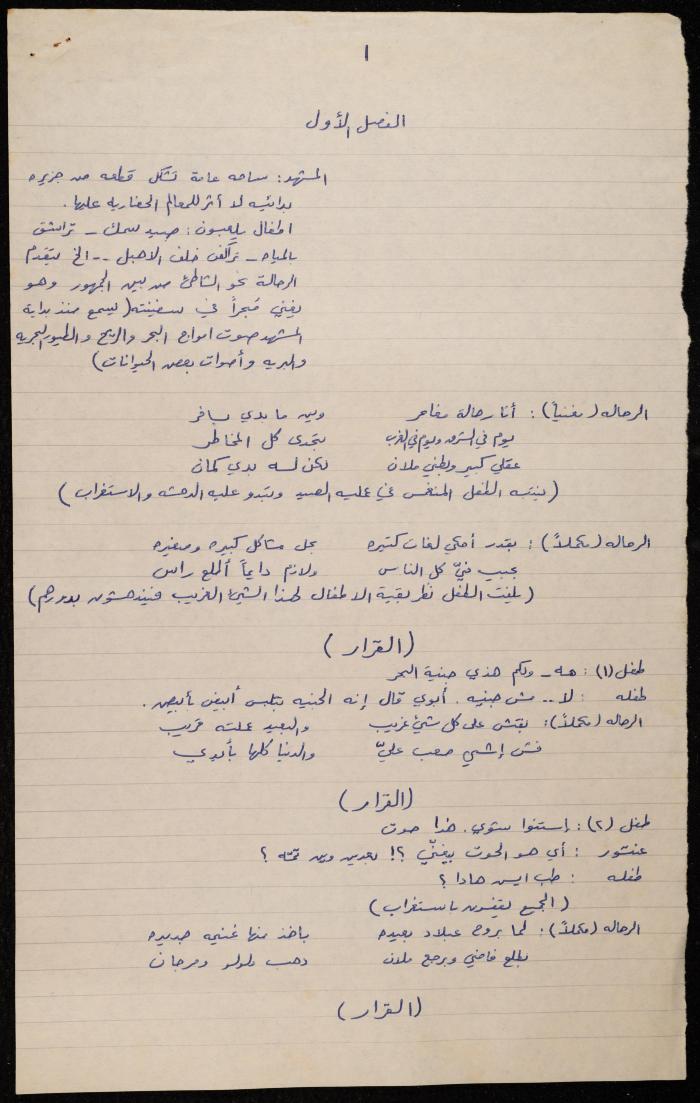 ١
الفصل الأول
المشهد: ساحه عامة تشكل قطعه من جزيره
بدائيه لا أثر للمعالم الحضاريه عليها.
اطفال يلعبون: صيد سمك - تراشق
بالمياه - تراكض خلف الاهبل -- الخ يتقدم
الرحالة نحو الشاطئ من بين الجمهور وهو
يغني مبحراً في سفينته (يسمع منذ بداية
المشهد صوت امواج البحر والريح والطيور البحريه
والبريه وأصوات بعض الحيوانات)
الرحاله (مغنياً): أنا رحالة مغامر وين ما بدي بسافر
يوم في الشرق ويوم في الغرب بتحدى كل المخاطر
عقلي كبير وبطني ملان لكن لسه بدي كمان
(ينتبه الطفل المنغمس في عمليه الصيد وتبدو عليه الدهشه والاستغراب)
الرحاله (مكملاً): بقدر أحكي لغات كتيره بحل مشاكل كبيره وصغيره
بجيب فيّ كل الناس ولازم دايماً أطلع راس
(يلفت الطفل نظر بقية الاطفال لهذا الشيئ الغريب فيندهشون بدورهم)
(القرار)
طفل (١): هه - ولكم هذي جنية البحر
طفله: لا.. مش جنيه. أبوي قال إنه الجنيه بتلبس أبيض بأبيض.
الرحاله (مكملاً): بفتش على كل شيئ غريب والبعيد عملته قريب
فش إشي صعب عليّ والدنيا كلها بأيدي
(القرار)
طفل (٢): إستنوا شوي. هذا حوت
عنتور: أي هو الحوت بيغنّي ؟! بعدين وين تمّه ؟
طفله: طب ايش هادا ؟
(الجميع يقفون باستغراب)
الرحاله (مكملاً): لما بروح عبلاد بعيده باخذ منها غنيه جديده
بطلع فاضي وبرجع ملان دهب ولولو ومرجان
(القرار)